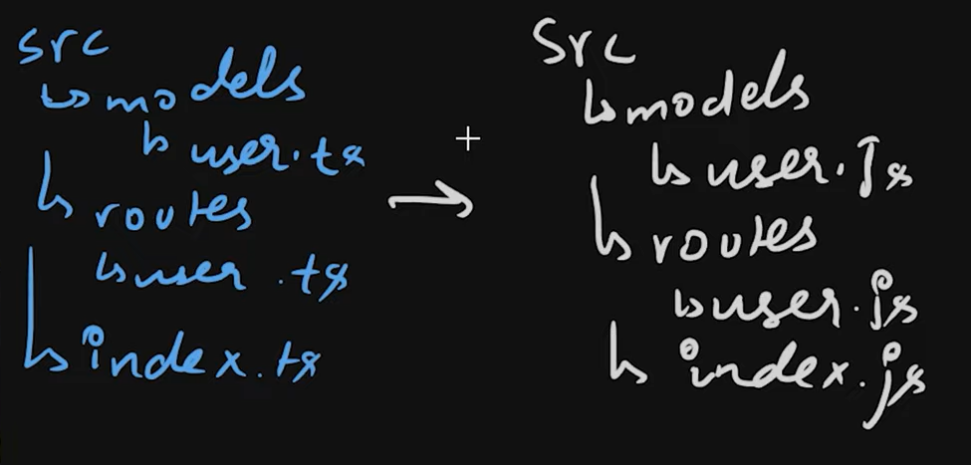 src
models
user.ts
routes
user.ts
index.ts
src
models
user.js
routes
user.js
index.js